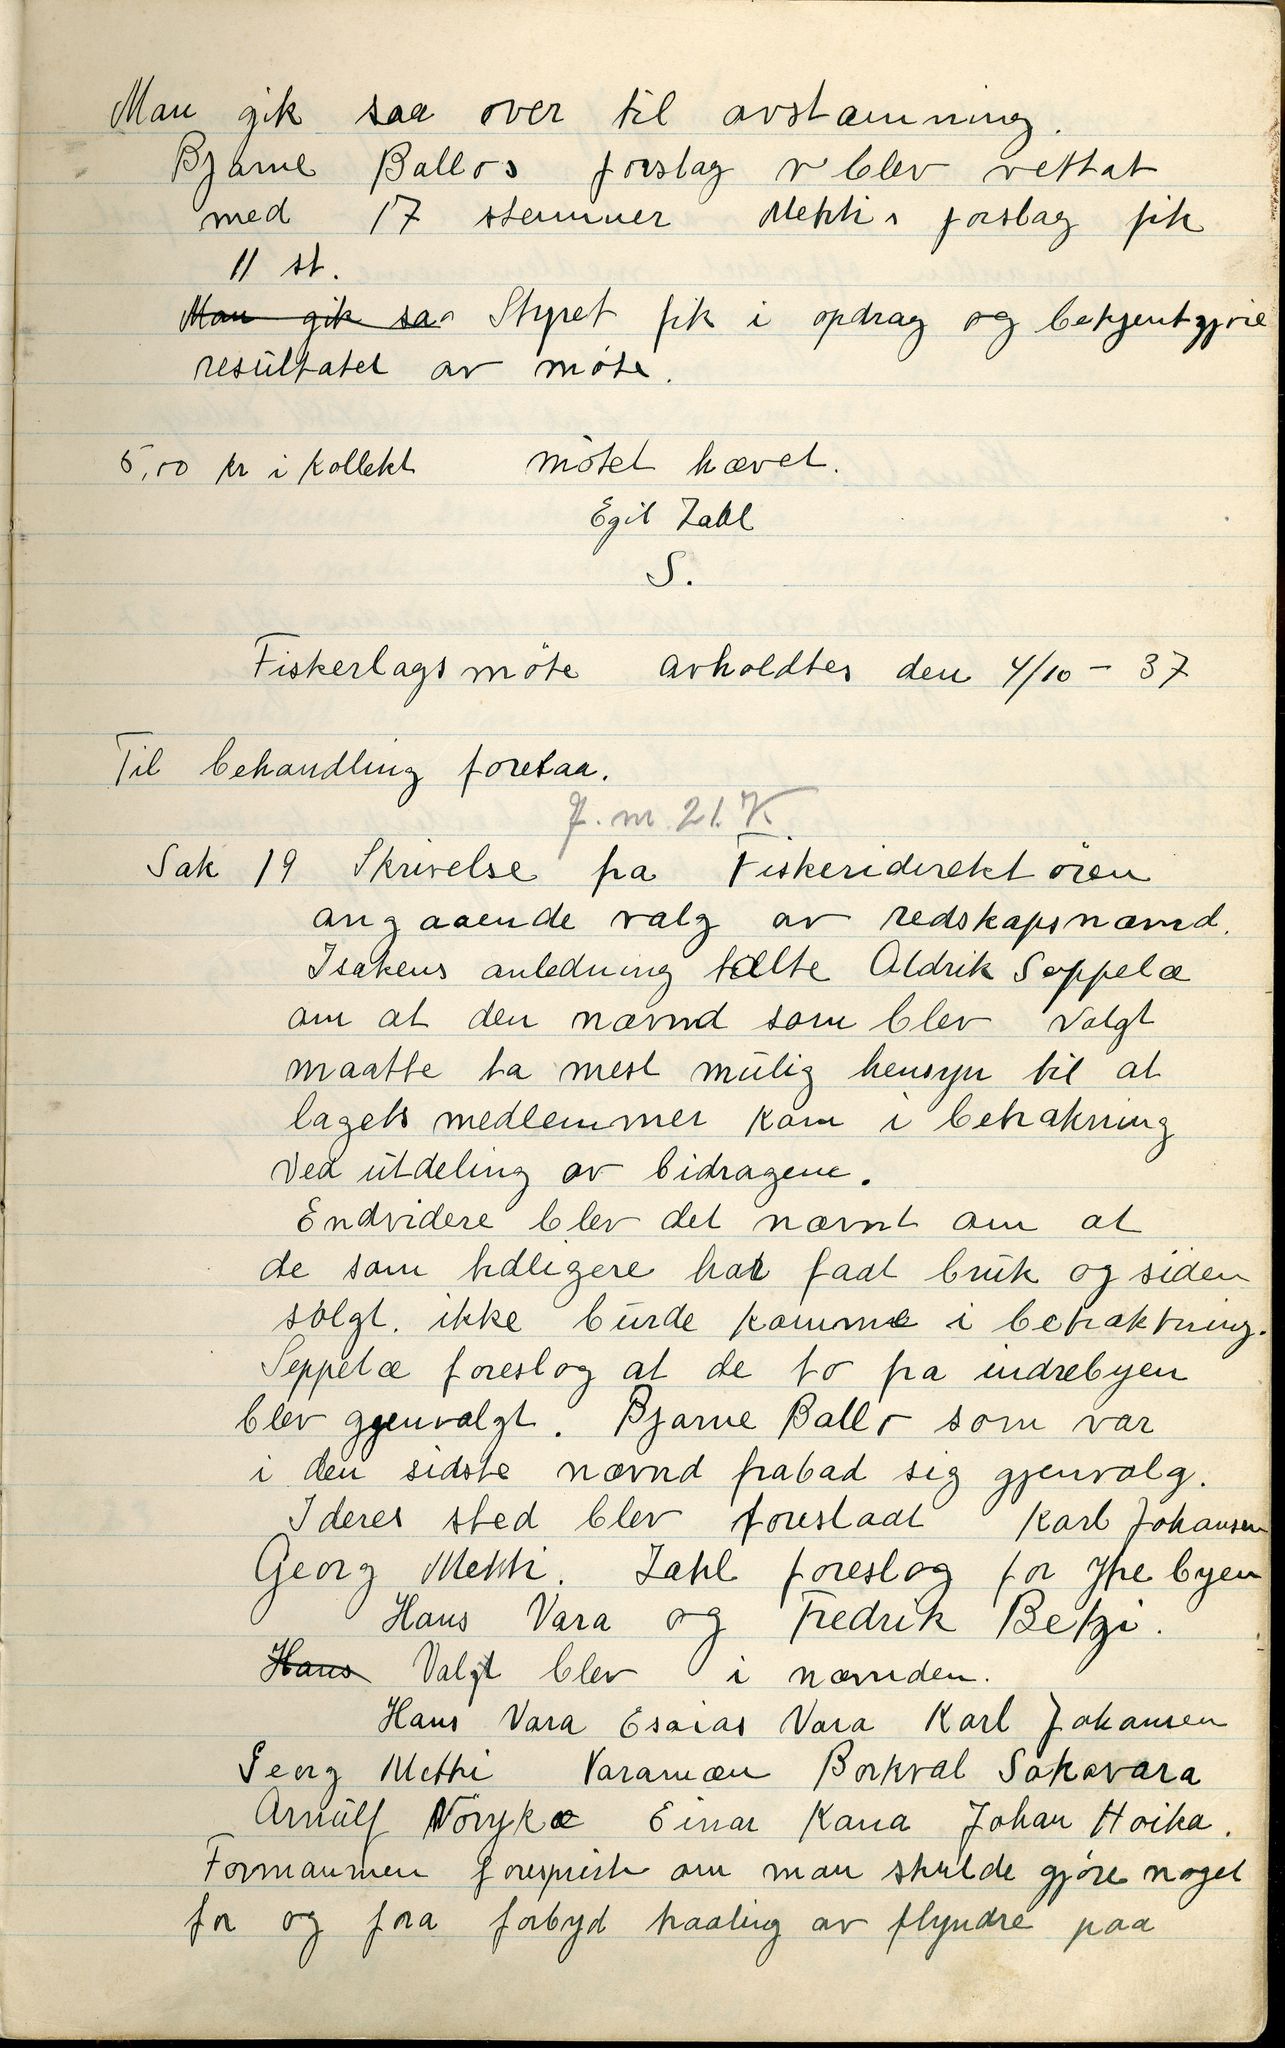 Man gik saa over til avstamning.
Bjarne Ballos forslag v blev vettat
med 17 stemmer Mettis forslag fik
11 st.
Man gik saa Styret fik i opdrag og bekjentgjøre
resultatet av møte.
5,00 kr i kollekt møtet hævet.
Egil Zahl
S.
Fiskerlagsmøte avholdtes den 4/10 - 37
Til behandling foretaa.
J.m. 21. K
Sak 19 Skrivelse fra Fiskeridirektøren
angaaende valg av redskapsnævnd.
Isakens anledning talte Aldrik Seppelæ
om at den nævnd som blev valgt
maatte ta mest mulig hensyn til at
lagets medlemmer kom i betrakning
ved utdeling av bidragene.
Endvidere blev det nævnt om at
de som tidligere har faat bruk og siden
solgt. ikke burde komme i betraktning.
Seppelæ foreslog at de to fra indrebyen
blev gjenvalgt. Bjarne Ballo som var
i den sidste nævnd frabad sig gjenvalg.
I deres sted blev foreslaat Karl Johansen
Georg Metti. Zahl foreslog for ytre byen
Hans Vara og Fredrik Betzi.
Hans Valgt blev i nævnden.
Hans Vara Esaias Vara Karl Johansen
Georg Metti Varamæn Borkval Sakovara
Arnulf Nörykæ Einar Kana Johan Hoika.
Formannen forespurte om man skulde gjøre noget
for og fora forbyd haaling av flyndre paa